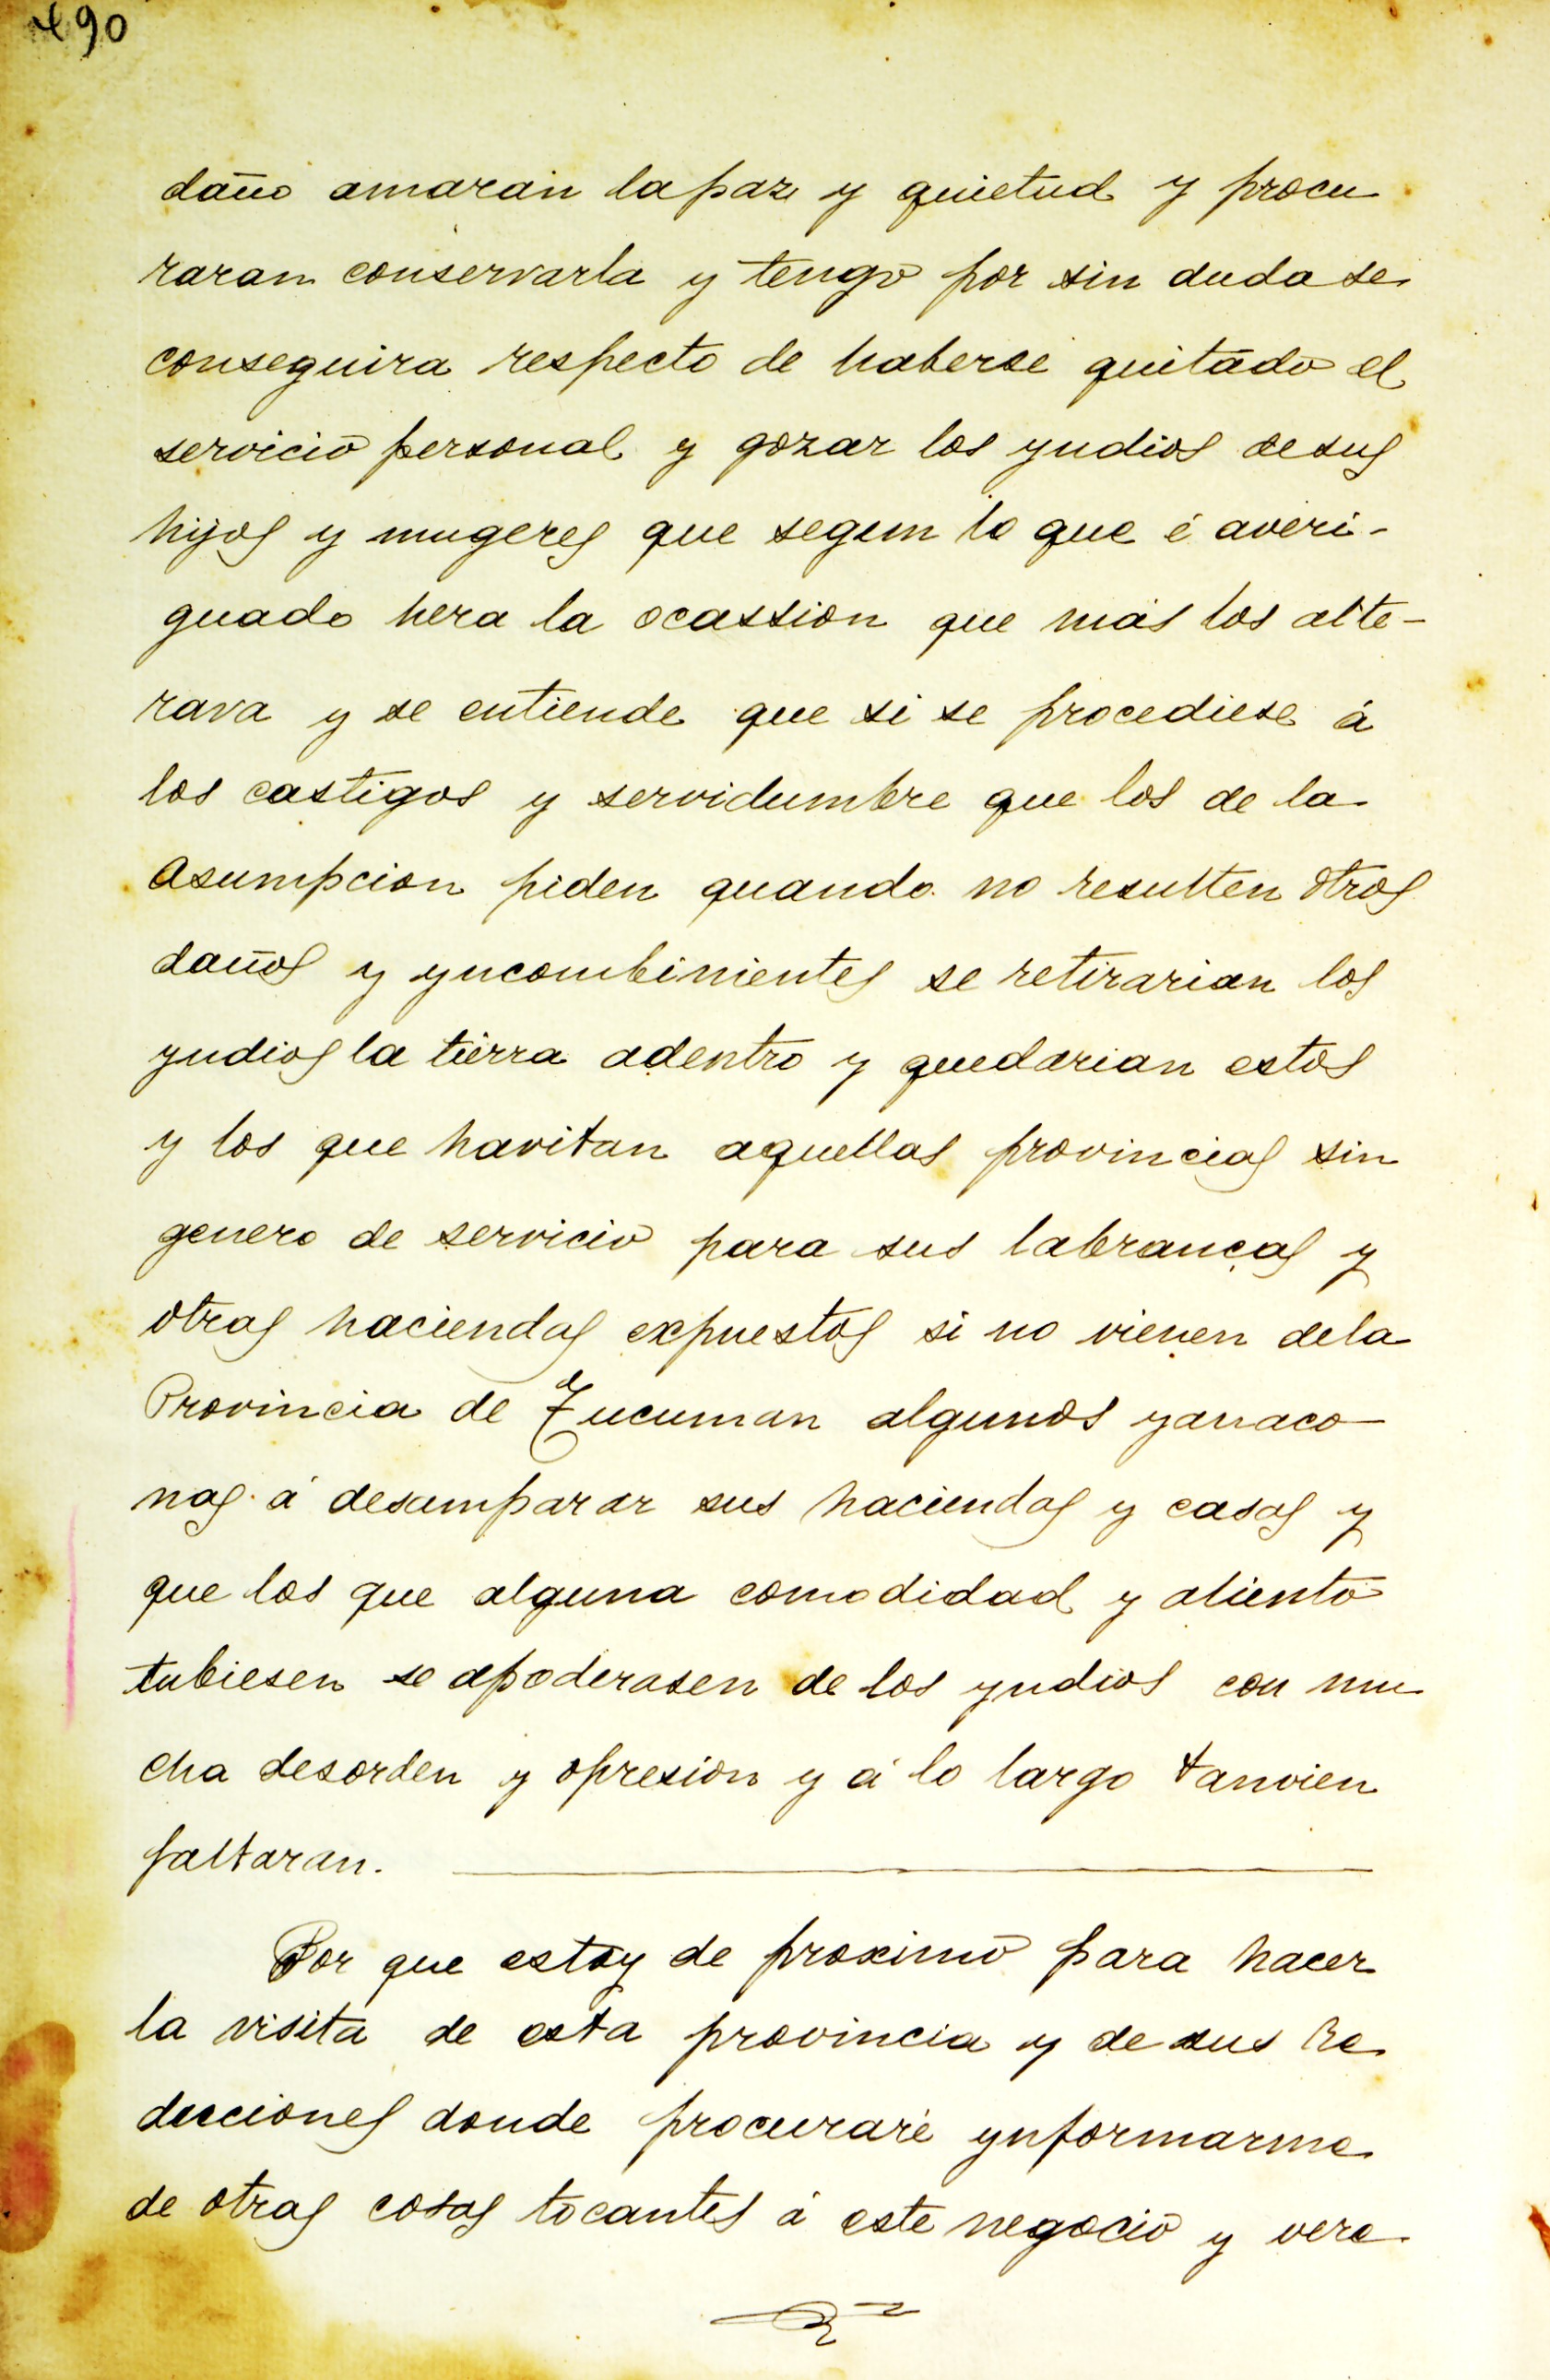 490
daño amaran la paz y quietud y procu
raran conservarla y tengo por sin duda se
conseguira respecto de haberse quitado el
servicio personal y gozar los yndios de sus
hijos y mugeres que segun lo que é averi-
guado hera la ocassion que más los alte-
rava y se entiende que si se procediese á
los castigos y servidumbre que los de la
Asumpcion piden quando no resulten otros
daños y yncombinientes se retirarian los
yndios la tierra adentro y quedarian estos
y los que havitan aquellas provincias sin
genero de servicio para sus labranças y
otras haciendas expuestos si no vienen de la
Provincia de Tucuman algunos yanaco
nas á desamparar sus haciendas y casas y
que los que alguna comodidad y aliento
tubiesen se apoderasen de los yndios con mu
cha desorden y opresion y á lo largo tanvien
faltaran.
Por que estoy de proximo para hacer
la visita de esta provincia y de sus Re
ducciones donde procuraré ynformarme
de otras cosas tocantes á este negocio y vere